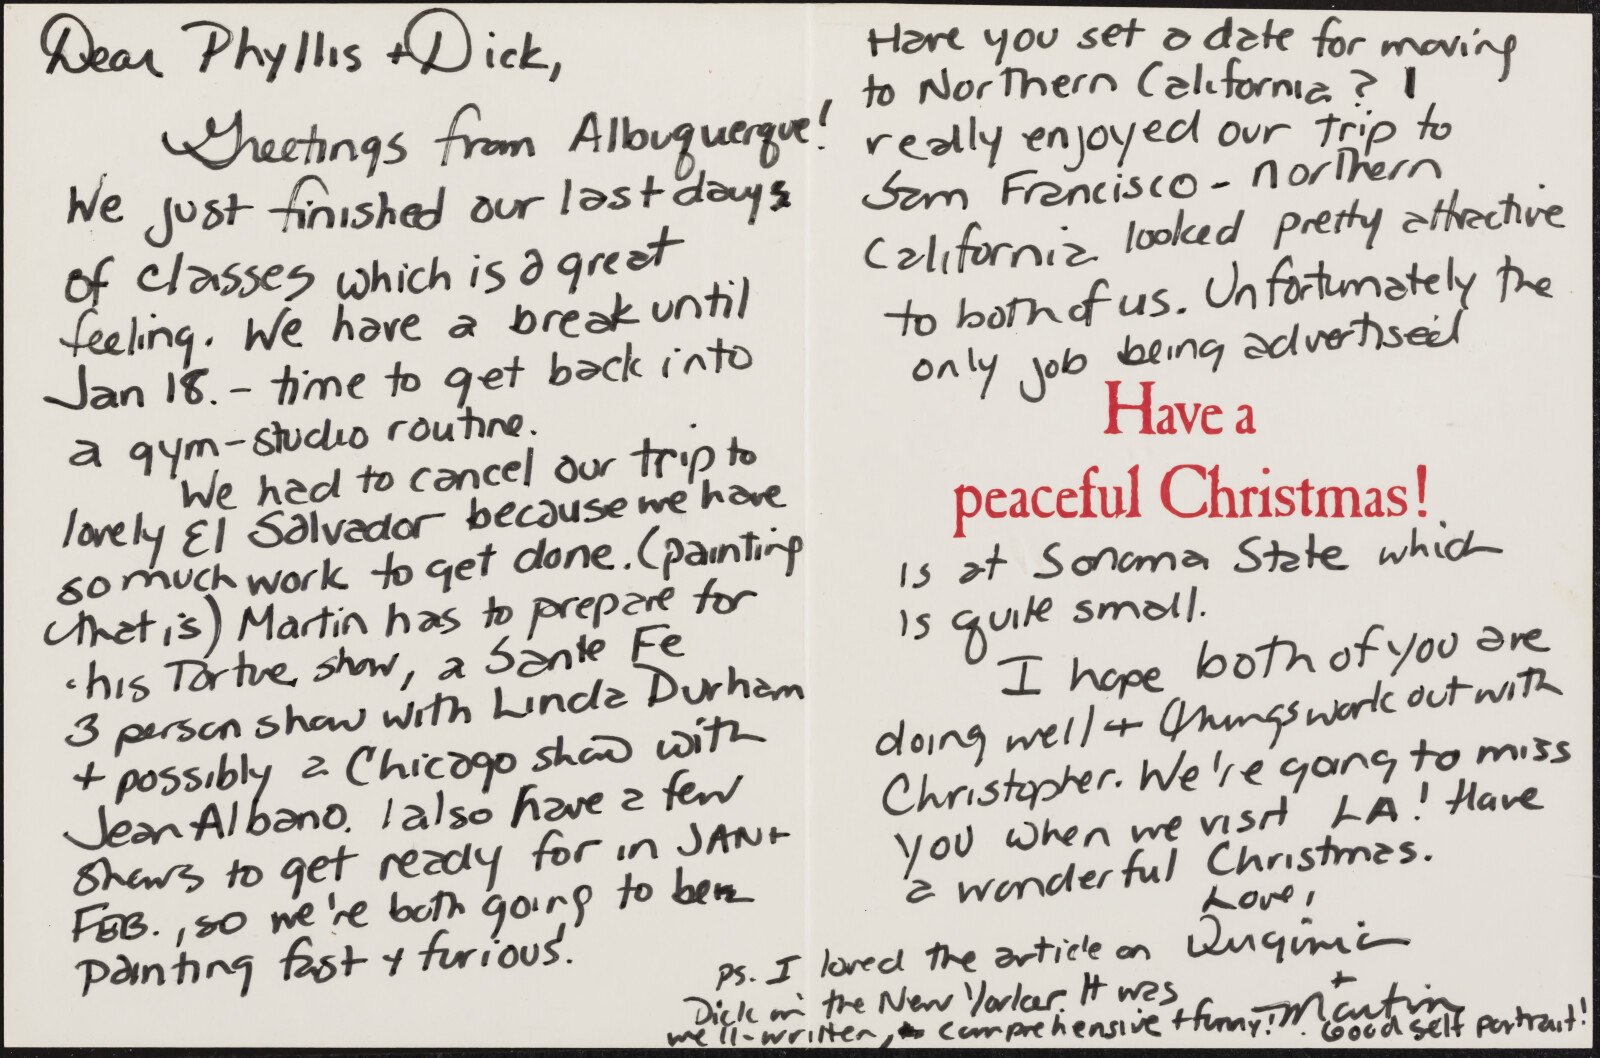 Dear Phyllis + Dick,
Greetings from Albuquerque!
We just finished our last days
of classes which is a great
feeling. We have a break until
Jan 18. - time to get back into
a gym-studio routine.
We had to cancel our trip to
lovely El Salvador because we have
so much work to get done. (painting
that is) Martin has to prepare for
his Tortue show, a Sante Fe
3 person show with Linda Durham
+ possibly a Chicago show with
Jean Albano. I also have a few
shows to get ready for in JAN +
FEB., so we're both going to be
painting fast & furious!
Have you set a date for moving
to Northern California? I
really enjoyed our trip to
San Francisco - northern
California looked pretty attractive
to both of us. Unfortunately the
only job being advertised
Have a
peaceful Christmas!
is at Sonoma State which
is quite small.
I hope both of you are
doing well + things work out with
Christopher. We're going to miss
you when we visit LA! Have
a wonderful Christmas.
Love,
Virginia
+
Martin
Ps. I loved the article on
Dick in the New Yorker. It was
well-written, comprehensive + funny! Good self portrait!